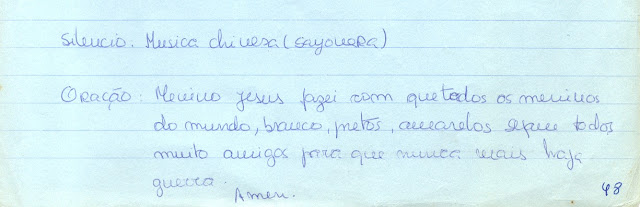 Silencio: Musica chinesa (sayonara)
Oração: Menino Jesus fazei com que todos os meninos
do mundo, branco, pretos, amarelos sejam todos
muito amigos para que nunca mais haja
guerra.
Amen.
48